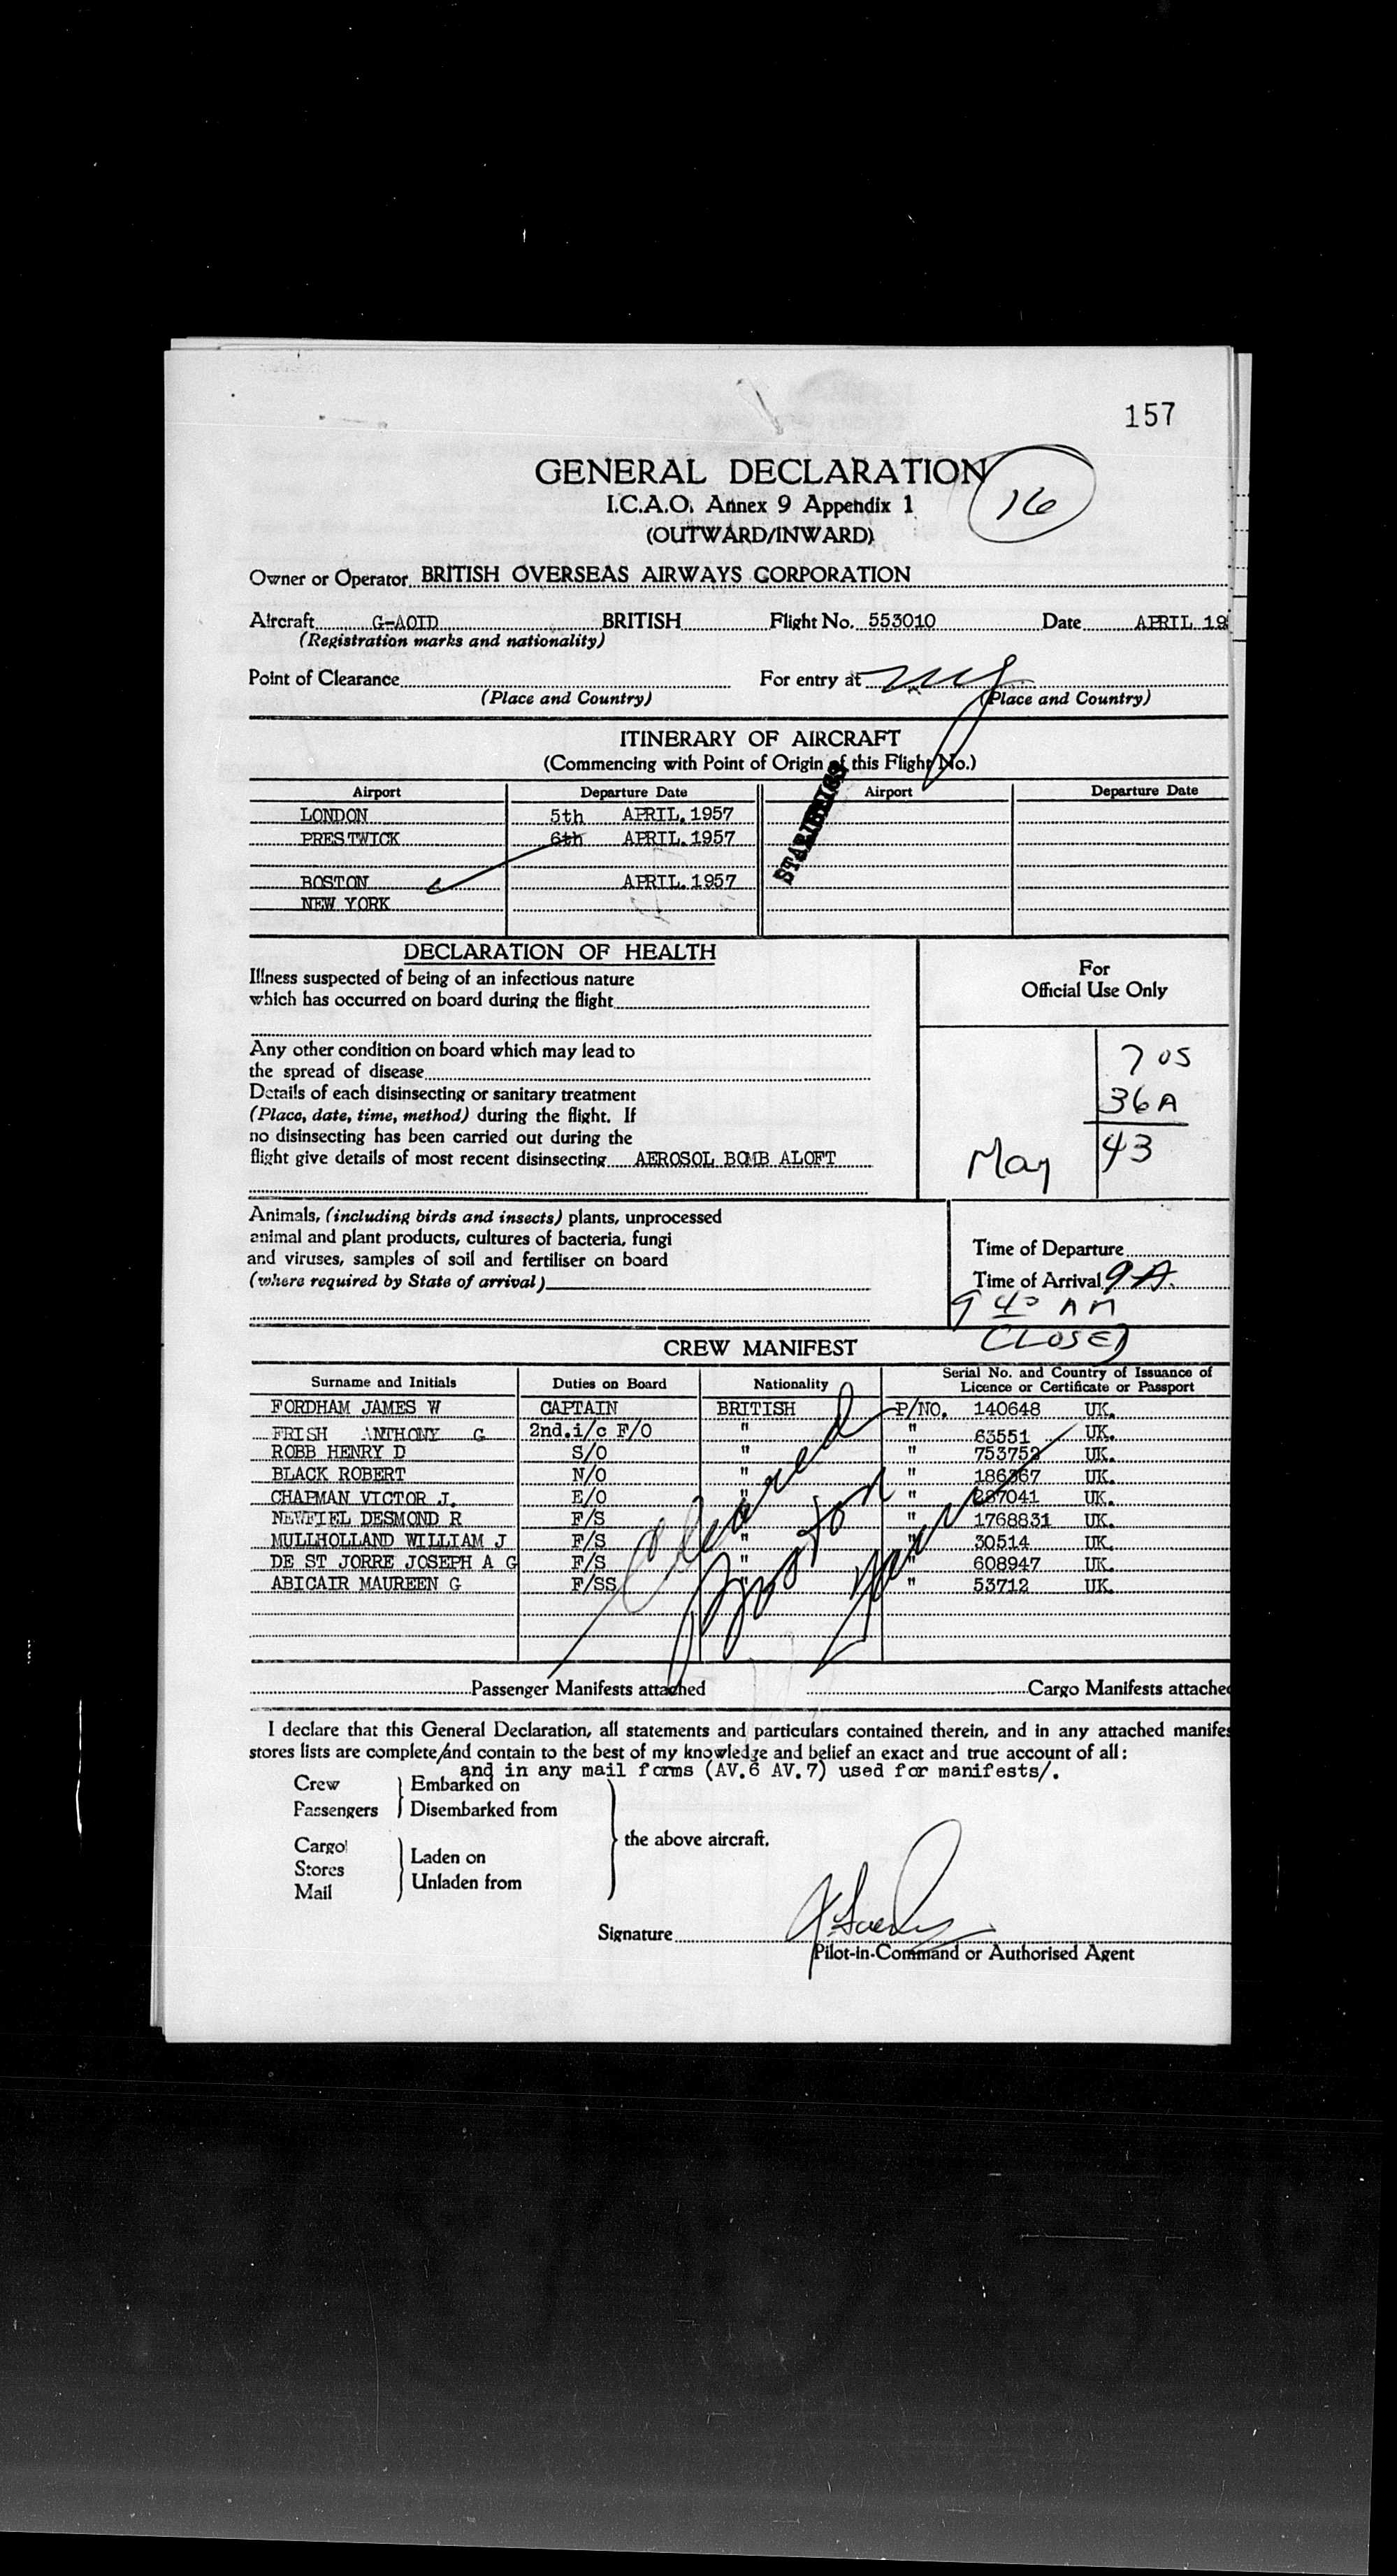 157
GENERAL DECLARATION
16
I.C.A.O. Annex 9 Appendix 1
(OUTWARD/INWARD)
Owner or Operator BRITISH OVERSEAS AIRWAYS CORPORATION
Aircraft G-AOID BRITISH Flight No. 553010 Date APRIL 19
(Registration marks and nationality)
Point of Clearance For entry at
(Place and Country) (Place and Country)
ITINERARY OF AIRCRAFT
(Commencing with Point of Origin of this Flight No.)
Airport Departure Date Airport Departure Date
LONDON 5th APRIL, 1957
PRESTWICK 6th APRIL. 1957
BOSTON APRIL. 1957
NEW YORK
DECLARATION OF HEALTH
Illness suspected of being of an infectious nature
which has occurred on board during the flight
For
Official Use Only
Any other condition on board which may lead to
the spread of disease
Details of each disinsecting or sanitary treatment
(Place, date, time, method) during the flight. If
no disinsecting has been carried out during the
flight give details of most recent disinsecting AEROSOL BOMB ALOFT
7 US
36 A
May 43
Animals, (including birds and insects) plants, unprocessed
animal and plant products, cultures of bacteria, fungi
and viruses, samples of soil and fertiliser on board
(where required by State of arrival)
Time of Departure
Time of Arrival 9 A.
9 40 AM
CLOSED
CREW MANIFEST
Surname and Initials Duties on Board Nationality Serial No. and Country of Issuance of
Licence or Certificate or Passport
FORDHAM JAMES W CAPTAIN BRITISH P/NO. 140648 UK.
FRISH ANTHONY G 2nd.i/c F/O " " 63551 UK.
ROBB HENRY D S/O " " 753752 UK.
BLACK ROBERT N/O " " 186367 UK.
CHAPMAN VICTOR J. E/O " " 287041 UK.
NEWFIEL DESMOND R F/S " " 1768831 UK.
MULLHOLLAND WILLIAM J F/S " " 30514 UK.
DE ST JORRE JOSEPH A G F/S " " 608947 UK.
ABICAIR MAUREEN G F/SS " " 53712 UK.
Cleared
Boston
Passenger Manifests attached Cargo Manifests attached
I declare that this General Declaration, all statements and particulars contained therein, and in any attached manifes
stores lists are complete/and contain to the best of my knowledge and belief an exact and true account of all:
and in any mail forms (AV.6 AV.7) used for manifests/.
Crew Embarked on
Passengers Disembarked from
the above aircraft.
Cargo
Laden on
Stores
Unladen from
Mail
Signature
Pilot-in-Command or Authorised Agent